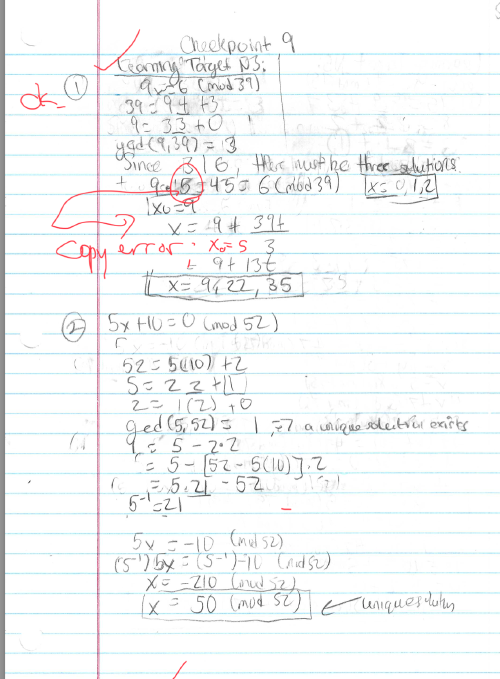 Checkpoint 9
Learning Target N3:
ok
① 9x ≡ 6 (mod 39)
39 = 9·4 + 3
9 = 3·3 + 0
gcd(9,39) = 3
Since 3|6, there must be three solutions
9·5 = 45 = 6 (mod 39) t = 0,1,2
x₀ = 9
x = 9 + 39t
3
copy error: x₀ = 5
= 9 + 13t
x = 9, 22, 35
② 5x + 10 = 0 (mod 52)
52 = 5(10) + 2
5 = 2·2 + 1
2 = 1(2) + 0
gcd(5,52) = 1, => a unique solution exists
1 = 5 - 2·2
= 5 - [52 - 5(10)]·2
= 5·21 - 52
5⁻¹ = 21
5x = -10 (mod 52)
(5⁻¹)5x = (5⁻¹)-10 (mod 52)
x = -210 (mod 52)
x = 50 (mod 52) ← unique soln